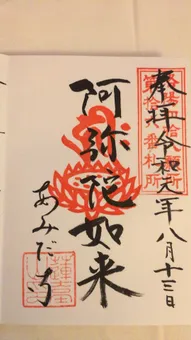 奉拝 令和元年八月十三日
阿弥陀如来
あみだ寺